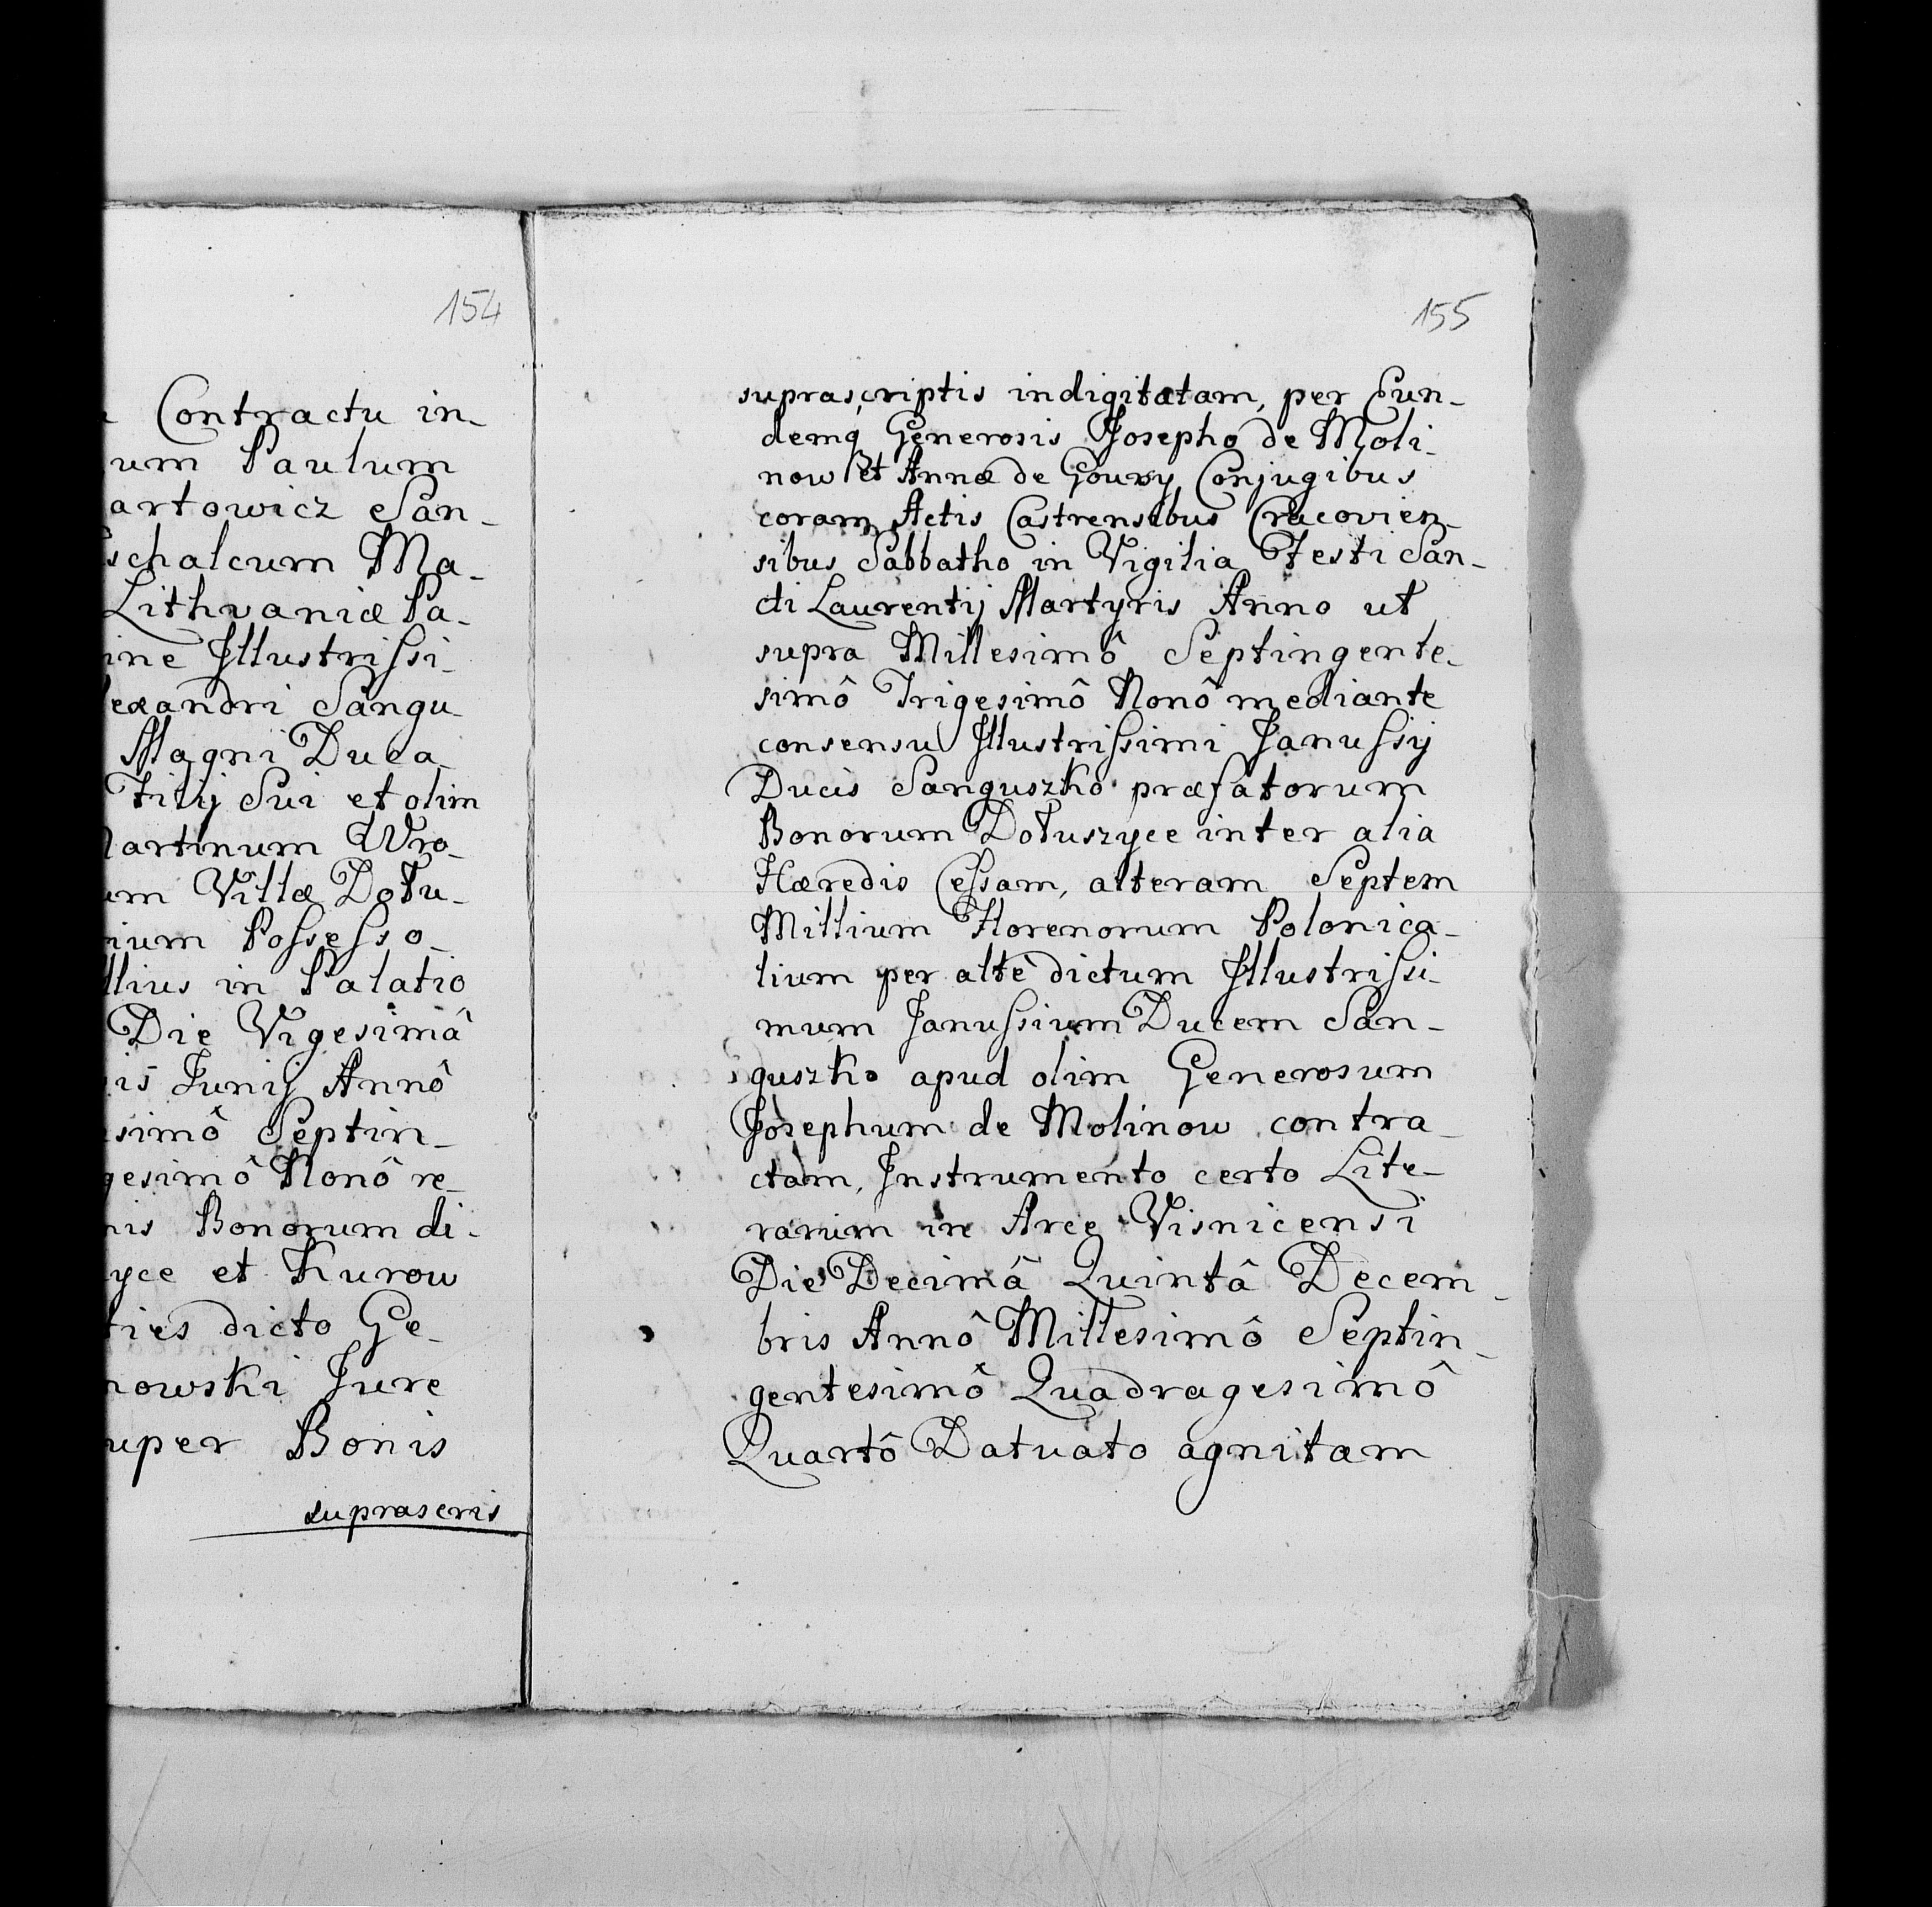 154
Contractu in-
um Paulum
artowicz San-
schalcum Ma-
Lithvaniæ Pa-
ine Illustrissi-
exandri Sangu-
Magni Duca-
Filij Sui et olim
artinum Wro-
um Villæ Dołu-
rium Possesso-
llius in Palatio
Die Vigesimâ
is Junij Annô
esimô Septin-
gesimô Nonô re-
nis Bonorum di-
yce et Kurow
ties dicto Ge-
nowski Jure
uper Bonis
suprascris
155
suprascriptis indigitatam, per Eun-
demq Generosis Josepho de Moli-
now et Annæ de Gowry Conjugibus
coram Actis Castrensibus Cracovien-
sibus Sabbatho in Vigilia Festi San-
cti Laurentij Martyris Anno ut
supra Millesimô Septingente-
simô Trigesimô Nonô mediante
consensu Illustrissimi Janussij
Ducis Sanguszko præfatorum
Bonorum Dołuszyce inter alia
Hæredis Cessam, alteram Septem
Millium Florenorum Polonica-
lium per altè dictum Illustrissi-
mum Janussium Ducem San-
guszko apud olim Generosum
Josephum de Molinow contra-
ctam, Instrumento certo Lite-
rarum in Arce Visnicensi
Die Decimâ Quintâ Decem-
bris Annô Millesimô Septin-
gentesimô Quadragesimô
Quartô Datuato agnitam